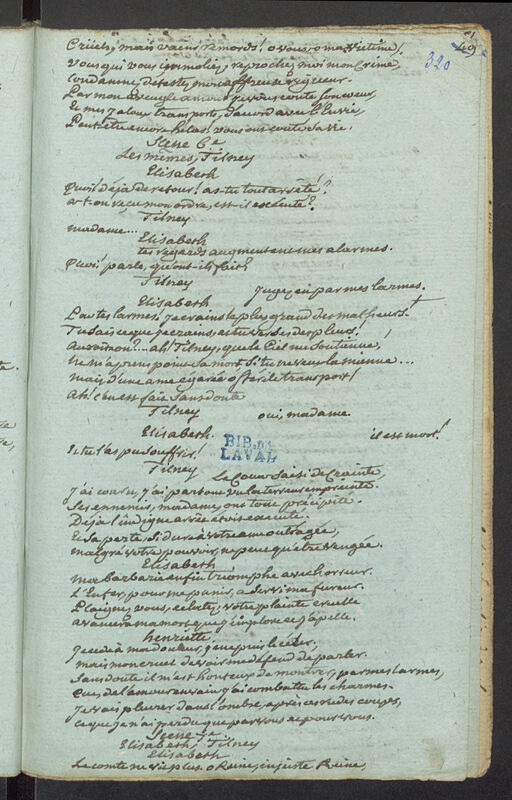 49
320
Cruels, mais vains remords! o vous, o ma victime!
Vous qui vous immoliez, reprochez moi mon crime
Condamnez, détestez mon affreuse rigueur.
Par mon aveugle amour je vous coute l'honneur,
Et mes jaloux transports, d'accord avec l'Envie,
Peut-etre encore helas! vous ont couté la vie.
Scene 6e
Les mêmes, Tilney
Elisabeth
Quoi! déja de retour! as-tu tout arrêté?
a-t-on reçu mon ordre, est-il exécuté?
Tilney
madame...
Elisabeth
tes regards augmentent mes alarmes.
Quoi! parle, qu'ont-ils fait?
Tilney
Jugez en par mes larmes.
Elisabeth
Par tes larmes! je crains le plus grand des malheurs.
Tu sais ce que je crains, et tu verses des pleurs!
Auroit-on?... ah! Tilney, que le Ciel me soutienne!
ne m'apprens point sa mort si tu ne veux la mienne...
mais d'une ame egarée o stérile transport!
Ah! c'en est fait sans doute
Tilney
oui, madame.
Elisabeth.
il est mort!
Et tu l'as pu souffrir!
BIB. DE
LAVAL
Tilney
Le Cœur saisi de crainte,
J'ai couru, j'ai partout vu la terreur empreinte.
Ses ennemis, madame, ont tout précipité.
Déja l'indigne arrêt etoit exécuté.
Et sa perte, si dure à votre ame outragée,
malgré votre pouvoir, ne peut qu'être vengée.
Elisabeth
ma barbarie enfin triomphe avec horreur.
L'Enfer, pour me punir, a servi ma fureur.
Plaignez vous, eclatez, votre plainte cruelle
avancera ma mort que j'implore et j'apelle.
henriette.
Je cede à ma douleur, je ne puis le celer;
mais mon cruel devoir me defend de parler.
Sans doute il m'est honteux de montrer, par mes larmes,
Que, de l'amour en vain j'ai combattu les charmes.
Je vais pleurer dans l'ombre, après ces rudes coups,
ce que je n'ai perdu que par vous et pour vous.
Scene 7e
Elisabeth, Tilney
Elisabeth
Le comte ne vit plus. o Reine, injuste Reine,